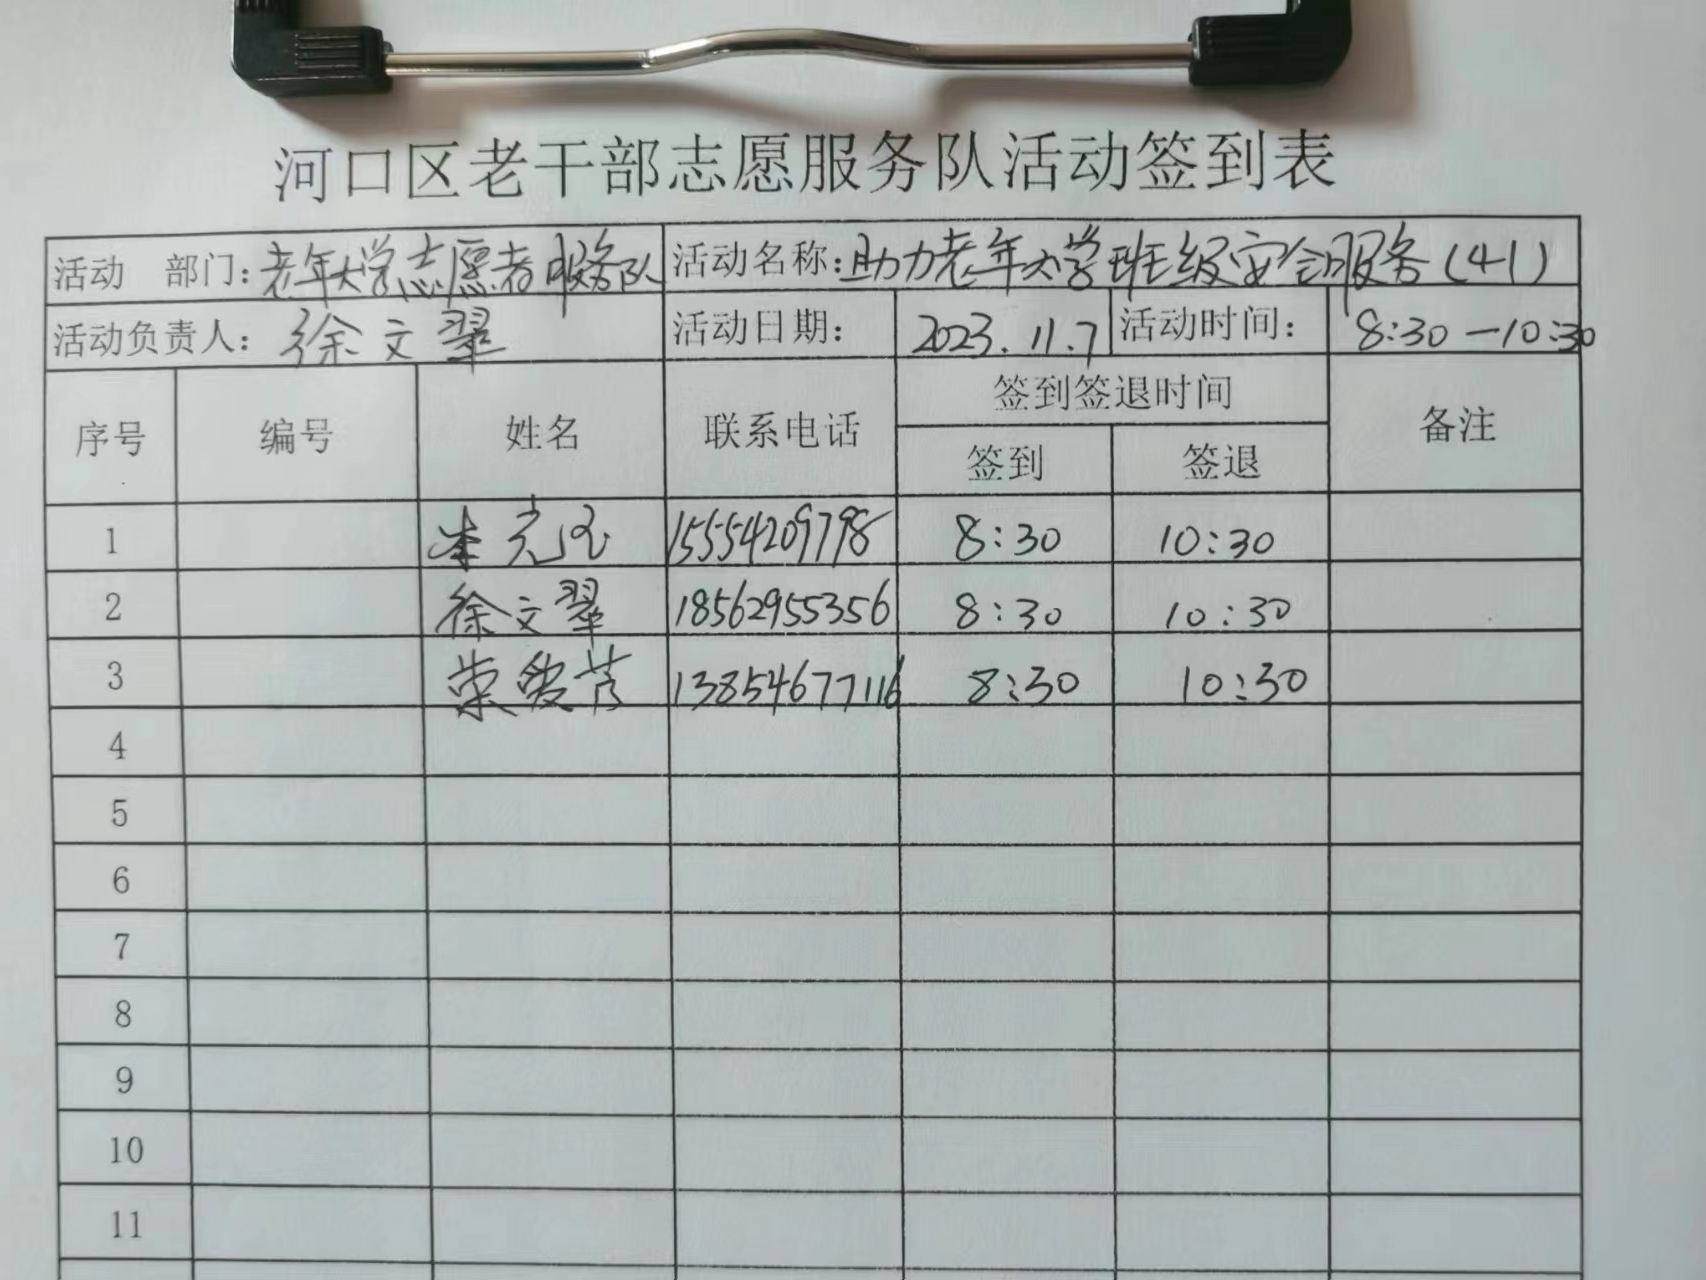 河口区老干部志愿服务队活动签到表
活动 部门：老年大学志愿者服务队 活动名称：助力老年大学班级安全服务（41）
活动负责人：徐文翠 活动日期： 2023.11.7 活动时间： 8:30—10:30
序号 编号 姓名 联系电话 签到签退时间 备注
签到 签退
1 15554209798 8:30 10:30
2 徐文翠 18562955356 8:30 10:30
3 13854677116 8:30 10:30
4
5
6
7
8
9
10
11